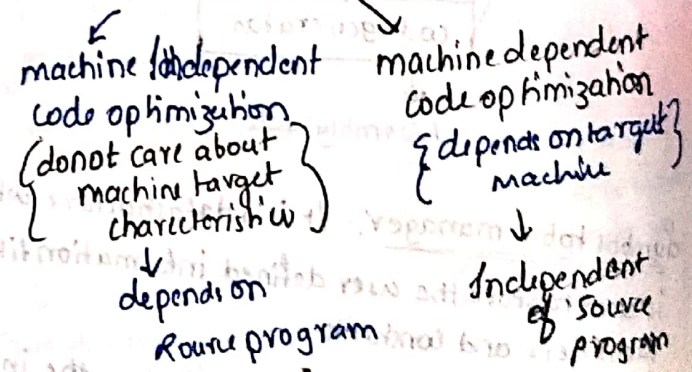 machine Independent
code optimization
(donot care about
machine target
charecteristics)
depends on
source program
machine dependent
code optimization
{depends on target}
machine
Independent
of source
program